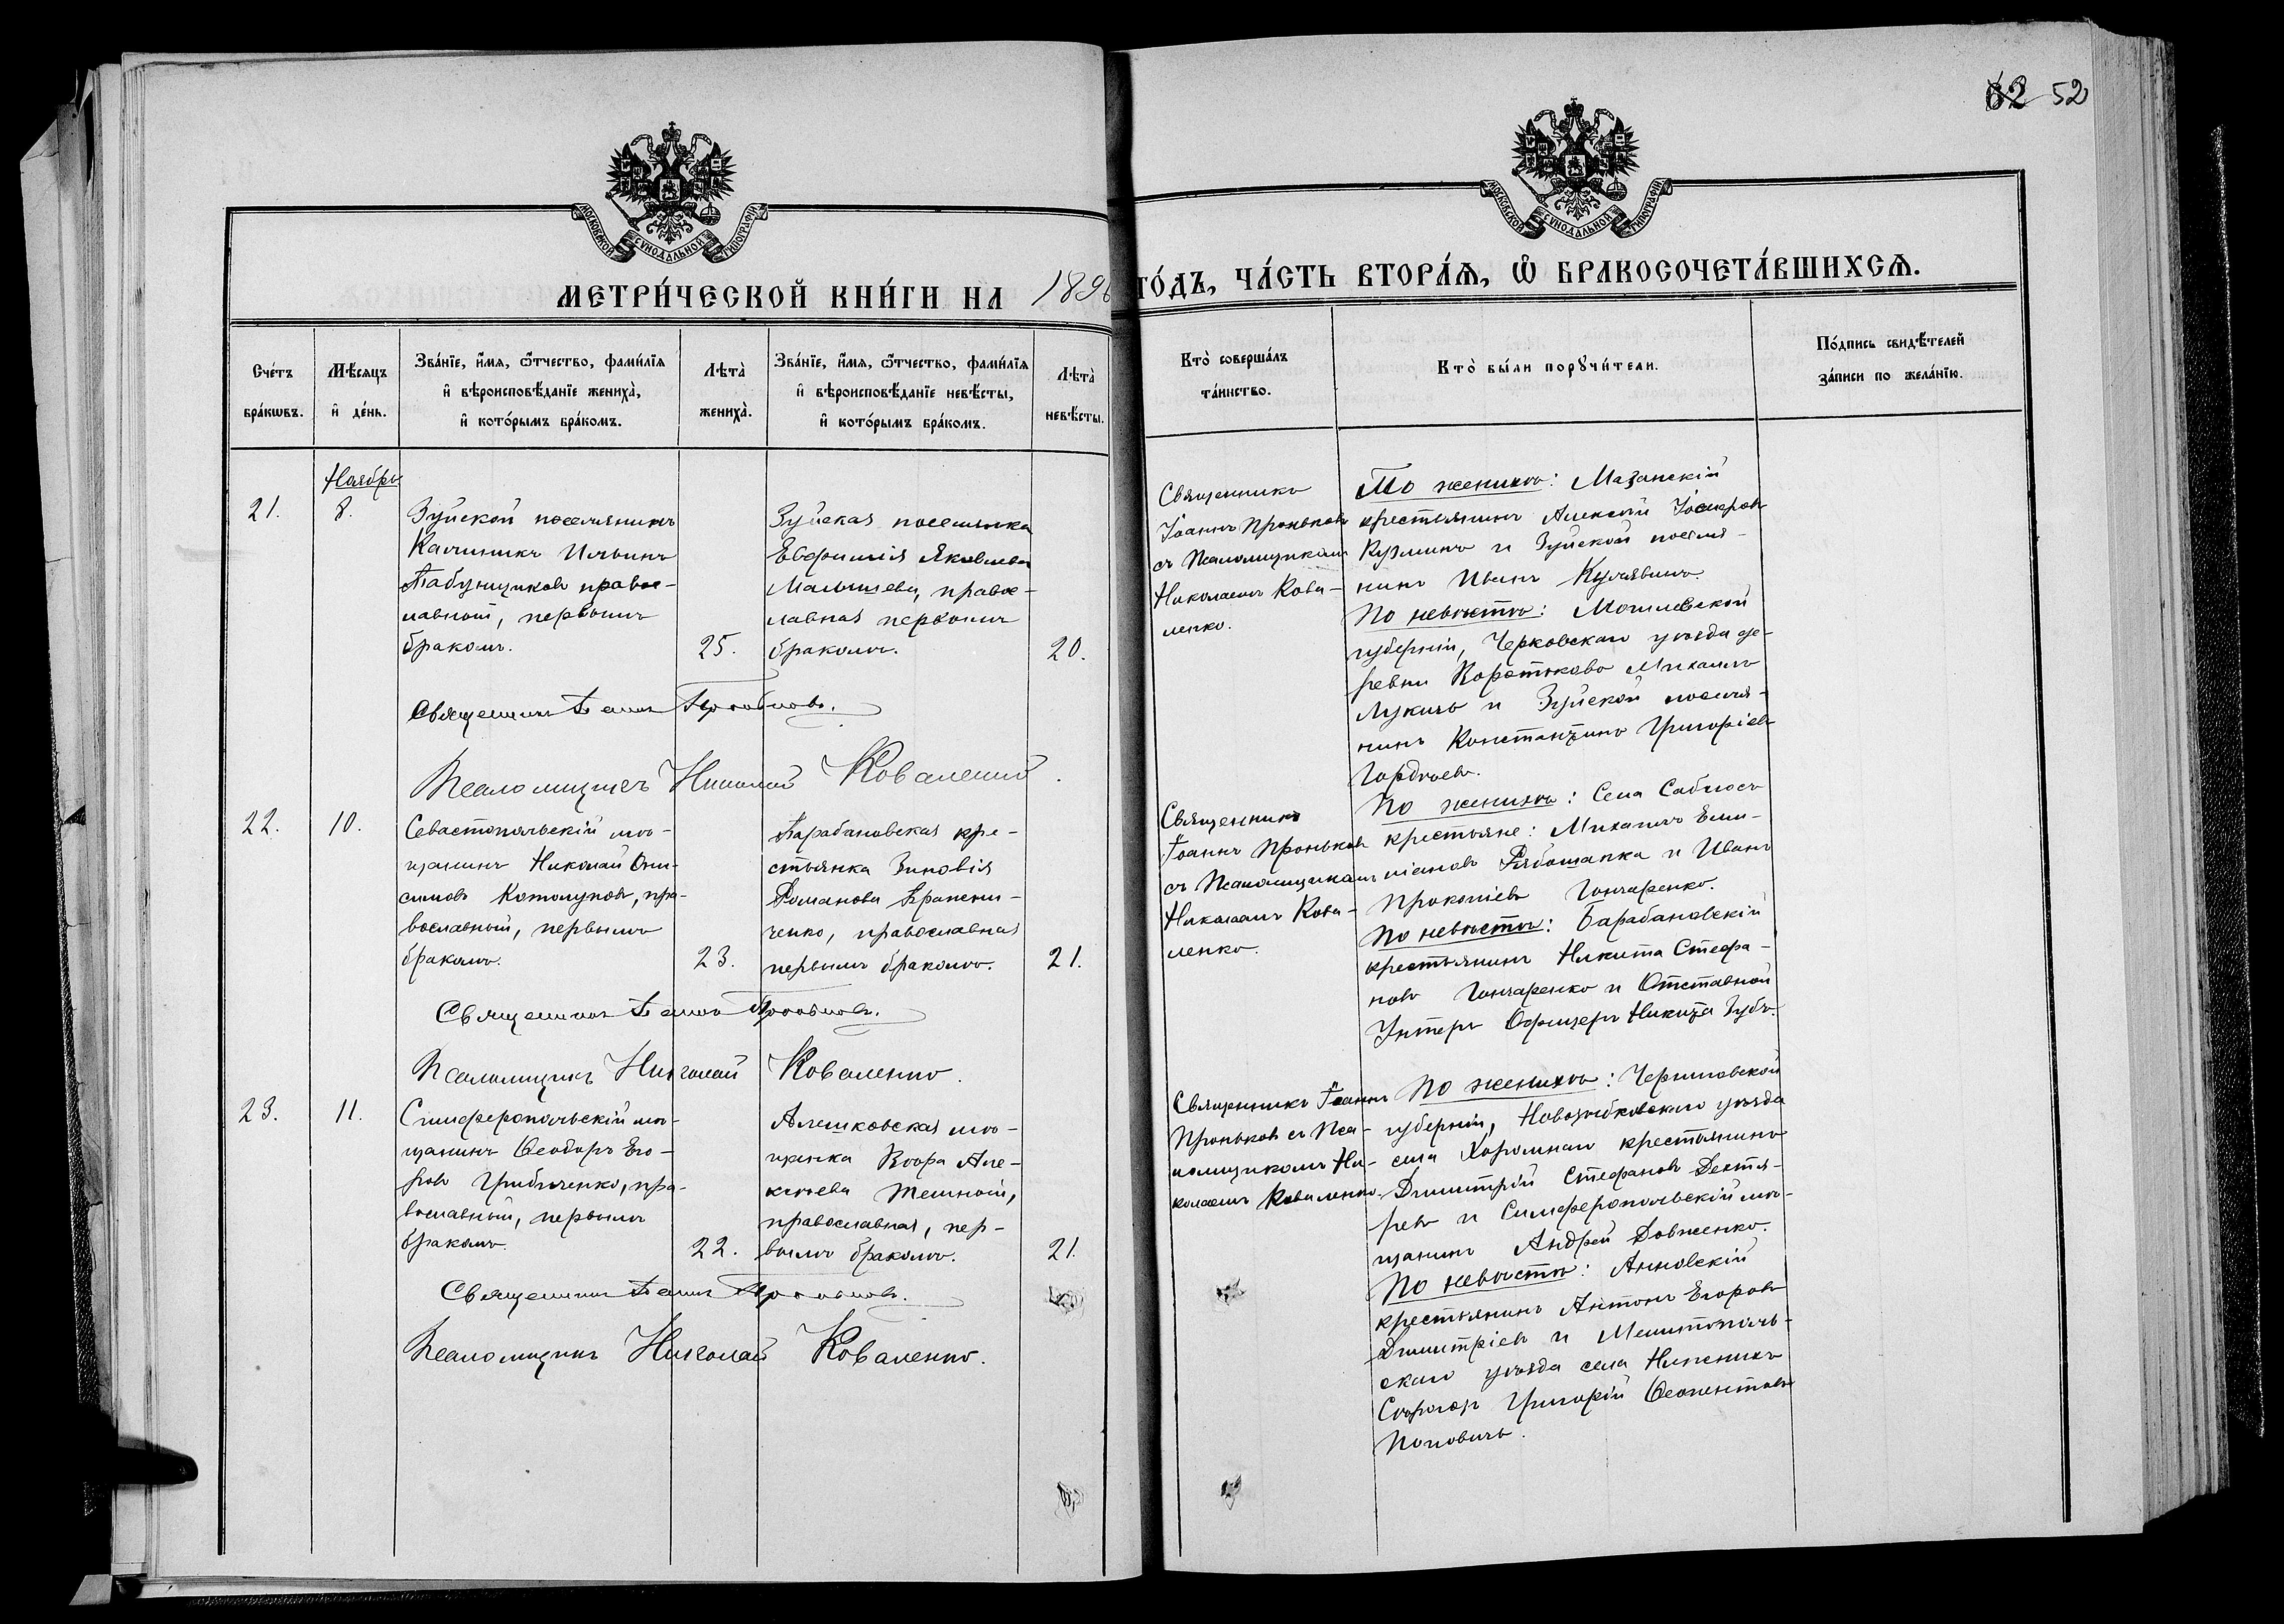 62 52
МОСКОВСКОЙ СѴНОДАЛЬНОЙ ТИПОГРАФІИ
МОСКОВСКОЙ СѴНОДАЛЬНОЙ ТИПОГРАФІИ
МЕТРИ́ЧЕСКОЙ КНИ́ГИ НА 189
ГО́ДЪ, ЧА́СТЬ ВТОРА́Ѧ, Ѽ БРАКОСОЧЕТА́ВШИХСѦ.
Сче́тъ
бра́кѡвъ.
Мѣ́сяцъ
и҆ де́нь.
Зва́нїе, и҆́мя, ѻ҆́тчество, фами́лїя
и҆ вѣроисповѣ́данїе жениха̀,
и҆ кото́рымъ бра́комъ.
Лѣта̀
жениха̀.
Зва́нїе, и҆́мя, ѻ҆́тчество, фами́лїя
и҆ вѣроисповѣ́данїе невѣ́сты,
и҆ кото́рымъ бра́комъ.
Лѣта̀
невѣ́сты.
Кто̀ соверша́лъ
та́инство.
Кто̀ бы́ли порꙋчи́тели.
По́дпись свидѣ́телей
за́писи по жела́нїю.
Ноября
21.
8.
Зуйской поселянинъ
Калиникъ Ильинъ
Табунщиковъ правос-
лавный, первымъ
бракомъ.
25.
Зуйская поселянка
Евфимія Яковлева
Малышева, правос-
лавная первымъ
бракомъ.
20.
Священникъ
Іоаннъ Проньковъ
съ Псаломщикомъ
Николаемъ Кова-
ленко.
По женихѣ: Мазанскій
крестьянинъ Алексѣй Іосифовъ
Кузминъ и Зуйской поселя-
нинъ Иванъ Кулявинъ.
По невѣстѣ: Могилевской
губерніи, Черковскаго уѣзда де-
ревни Коротьково Михаилъ
Лукинъ и Зуйской поселя-
нинъ Константинъ Григоріевъ
Гордѣевъ.
Священникъ Іоаннъ Проньковъ.
Псаломщикъ Николай Коваленко.
22.
10.
Севастопольскій мѣ-
щанинъ Николай Они-
симовъ Котолуповъ, пра-
вославный, первымъ
бракомъ.
23.
Барабановская кре-
стьянка Зиновія
Романова
ченко, православная
первымъ бракомъ.
21.
Священникъ
Іоаннъ Проньковъ
съ Псаломщикомъ
Николаемъ Кова-
ленко.
По женихѣ: Села Саблосъ
крестьяне: Михаилъ Еми-
ліановъ Рябошапка и Иванъ
Прокопіевъ Гончаренко.
По невѣстѣ: Барабановскій
крестьянинъ Никита Стефа-
новъ Гончаренко и Отставной
Унтеръ Офицеръ Никита Зубъ.
Священникъ Іоаннъ Проньковъ.
Псаломщикъ Николай Коваленко.
23.
11.
Симферопольскій мѣ-
щанинъ Ѳеодоръ Его-
ровъ Грибиченко, пра-
вославный, первымъ
бракомъ.
22.
Алешковская мѣ-
щанка Вѣра Але-
ксѣева Темной,
православная, пер-
вымъ бракомъ.
21.
Священникъ Іоаннъ
Проньковъ съ Пса-
ломщикомъ Ни-
колаемъ Коваленко.
По женихѣ: Черниговской
губерніи, Новозыбковскаго уѣзда
села Хоромнаго крестьянинъ
Димитрій Стефановъ Дехтя-
ревъ и Симферопольскій мѣ-
щанинъ Андрей Довженко.
По невѣстѣ: Анновскій
крестьянинъ Антонъ Егоровъ
Димитріевъ и Мелитополь-
скаго уѣзда села
Григорій Ѳеопентовъ
Поповичъ.
Священникъ Іоаннъ Проньковъ.
Псаломщикъ Николай Коваленко.